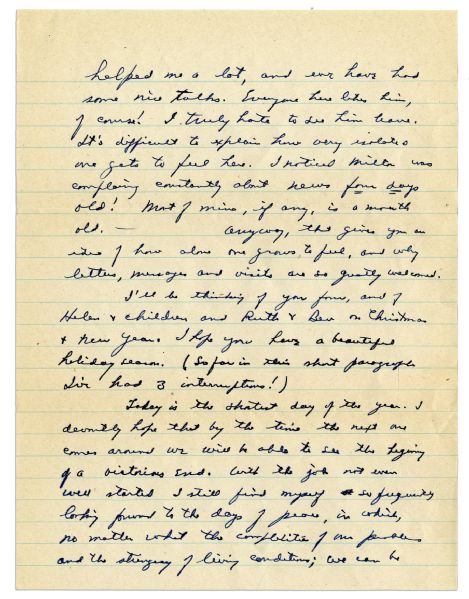 helped me a lot, and we have had
some nice talks. Everyone here likes him,
of course! I truly hate to see him leave.
It's difficult to explain how very isolated
one gets to feel here. I noticed Milton was
complaing constantly about news four days
old! Most of mine, if any, is a month
old. — Anyway, this gives you an
idea of how alone one grows to feel, and why
letters, messages and visits are so greatly welcomed.
I'll be thinking of you four, and of
Helen & children and Ruth & Bev on Christmas
& New Years. I hope you have a beautiful
holiday season. (So far in this short paragraph
I've had 3 interruptions!)
Today is the shortest day of the year. I
devoutly hope that by the time the next one
comes around we will be able to see the beging
of a victorious end. With the job not even
well started I still find myself so frequently
looking forward to the days of peace, in which,
no matter what the complexities of our problems
and the stringency of living conditions; we can be